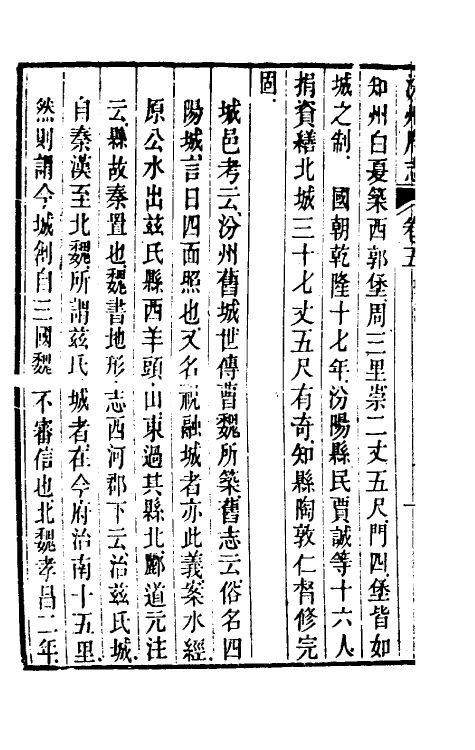 汾州府志 卷五
知州白夏築西郭堡周三里崇二丈五尺門四堡皆如
城之制 國朝乾隆十七年汾陽縣民賈誠等十六人
捐資繕北城三十七丈五尺有奇知縣陶敦仁督修完
固
城邑考云汾州舊城世傳曹魏所築舊志云俗名四
陽城言日四面照也又名祝融城者亦此義案水經
原公水出兹氏縣西羊頭山東過其縣北酈道元注
云縣故秦置也魏書地形志西河郡下云治兹氏城
自秦漢至北魏所謂兹氏城者在今府治南十五里
然則謂今城創自三國魏不審信也北魏孝昌二年